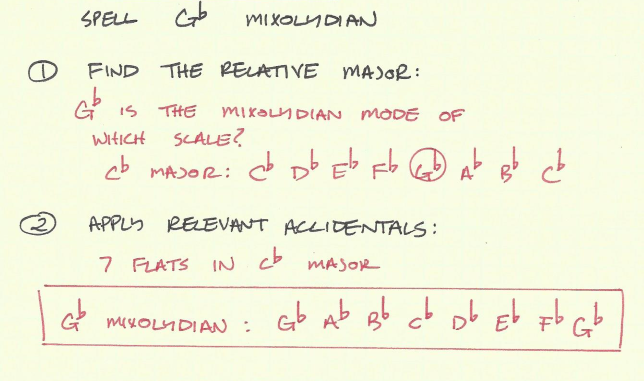 SPELL G♭ MIXOLYDIAN
① FIND THE RELATIVE MAJOR:
G♭ IS THE MIXOLYDIAN MODE OF
WHICH SCALE?
C♭ MAJOR: C♭ D♭ E♭ F♭ G♭ A♭ B♭ C♭
② APPLY RELEVANT ACCIDENTALS:
7 FLATS IN C♭ MAJOR
G♭ MIXOLYDIAN: G♭ A♭ B♭ C♭ D♭ E♭ F♭ G♭